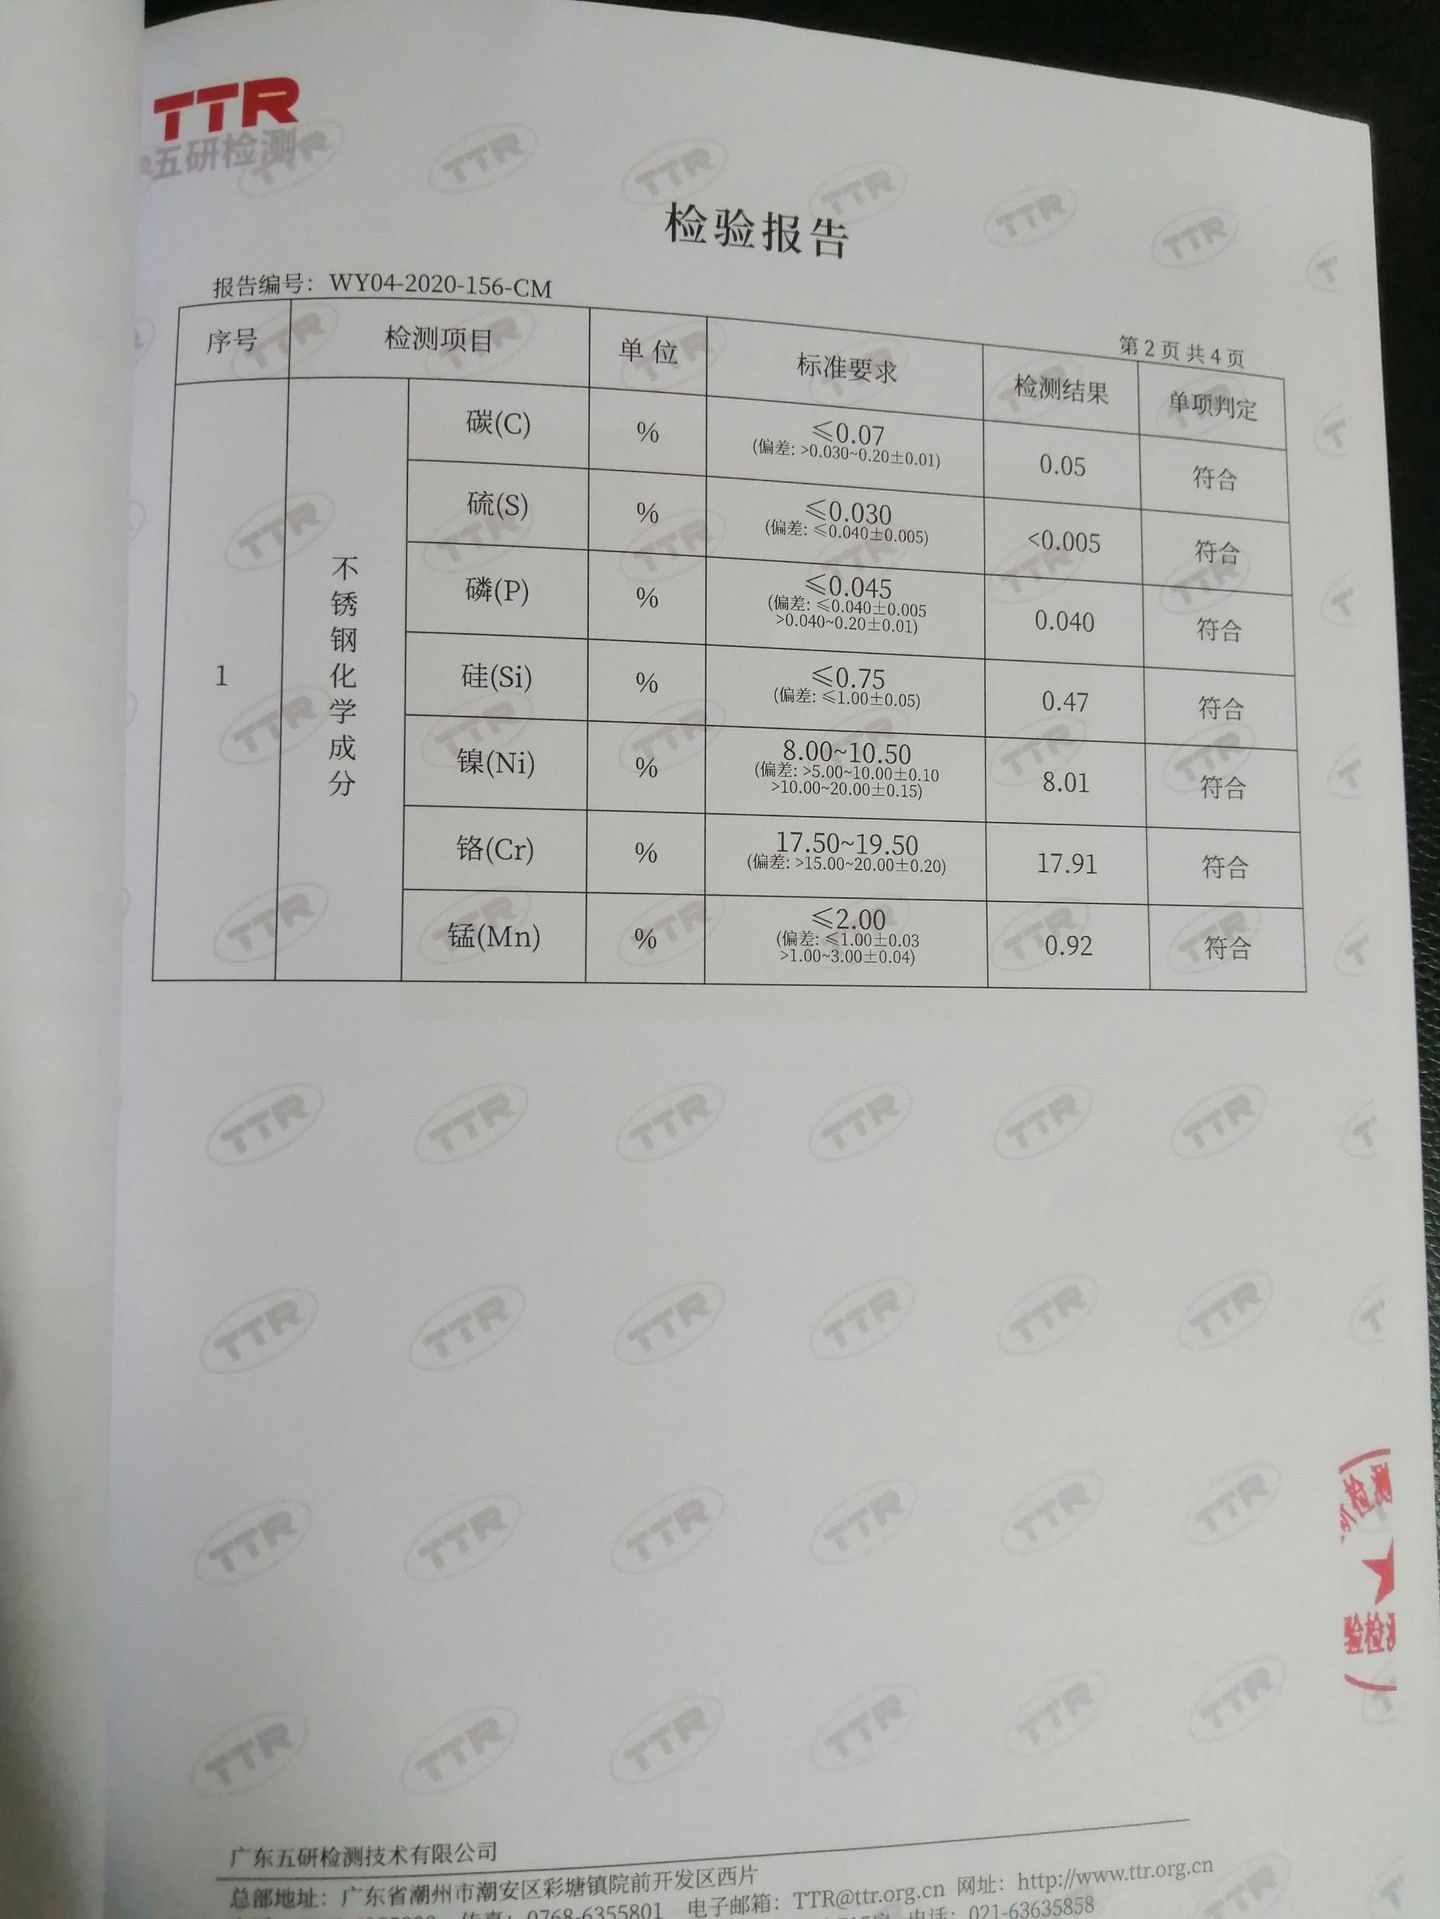 TTR
五研检测
检验报告
报告编号：WY04-2020-156-CM
第 2 页 共 4 页
序号 检测项目 单 位 标准要求 检测结果 单项判定
1 不锈钢化学成分
碳(C) % ≤0.07 0.05 符合
(偏差: >0.030~0.20±0.01)
硫(S) % ≤0.030 <0.005 符合
(偏差: ≤0.040±0.005)
磷(P) % ≤0.045 0.040 符合
(偏差: ≤0.040±0.005
>0.040~0.20±0.01)
硅(Si) % ≤0.75 0.47 符合
(偏差: ≤1.00±0.05)
镍(Ni) % 8.00~10.50 8.01 符合
(偏差: >5.00~10.00±0.10
>10.00~20.00±0.15)
铬(Cr) % 17.50~19.50 17.91 符合
(偏差: >15.00~20.00±0.20)
锰(Mn) % ≤2.00 0.92 符合
(偏差: ≤1.00±0.03
>1.00~3.00±0.04)
检测
验检
广东五研检测技术有限公司
总部地址：广东省潮州市潮安区彩塘镇院前开发区西片
电子邮箱：TTR@ttr.org.cn 网址：http://www.ttr.org.cn
传真：0768-6355801 电话：021-63635858